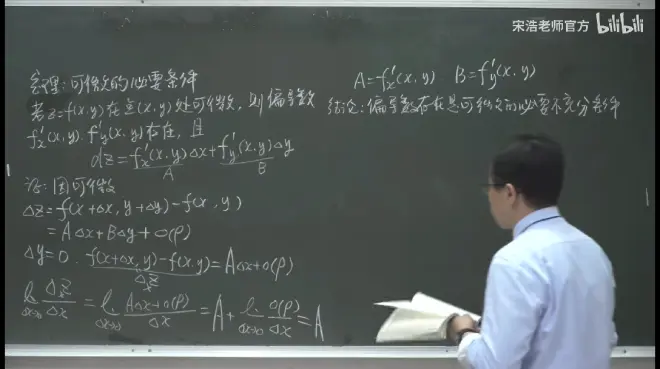 宋浩老师官方 bilibili
定理:可微的必要条件
若z=f(x,y)在点(x,y)处可微,则偏导数
f'x(x,y), f'y(x,y)存在,且
dz=f'x(x,y)Δx+f'y(x,y)Δy
A B
证:因可微
Δz=f(x+Δx,y+Δy)-f(x,y)
=AΔx+BΔy+o(ρ)
Δy=0. f(x+Δx,y)-f(x,y)=AΔx+o(ρ)
Δxz
lim Δxz/Δx = lim AΔx+o(ρ)/Δx = A+lim o(ρ)/Δx = A
Δx→0 Δx→0 Δx→0
A=f'x(x,y) B=f'y(x,y)
结论:偏导数存在是可微的必要不充分条件